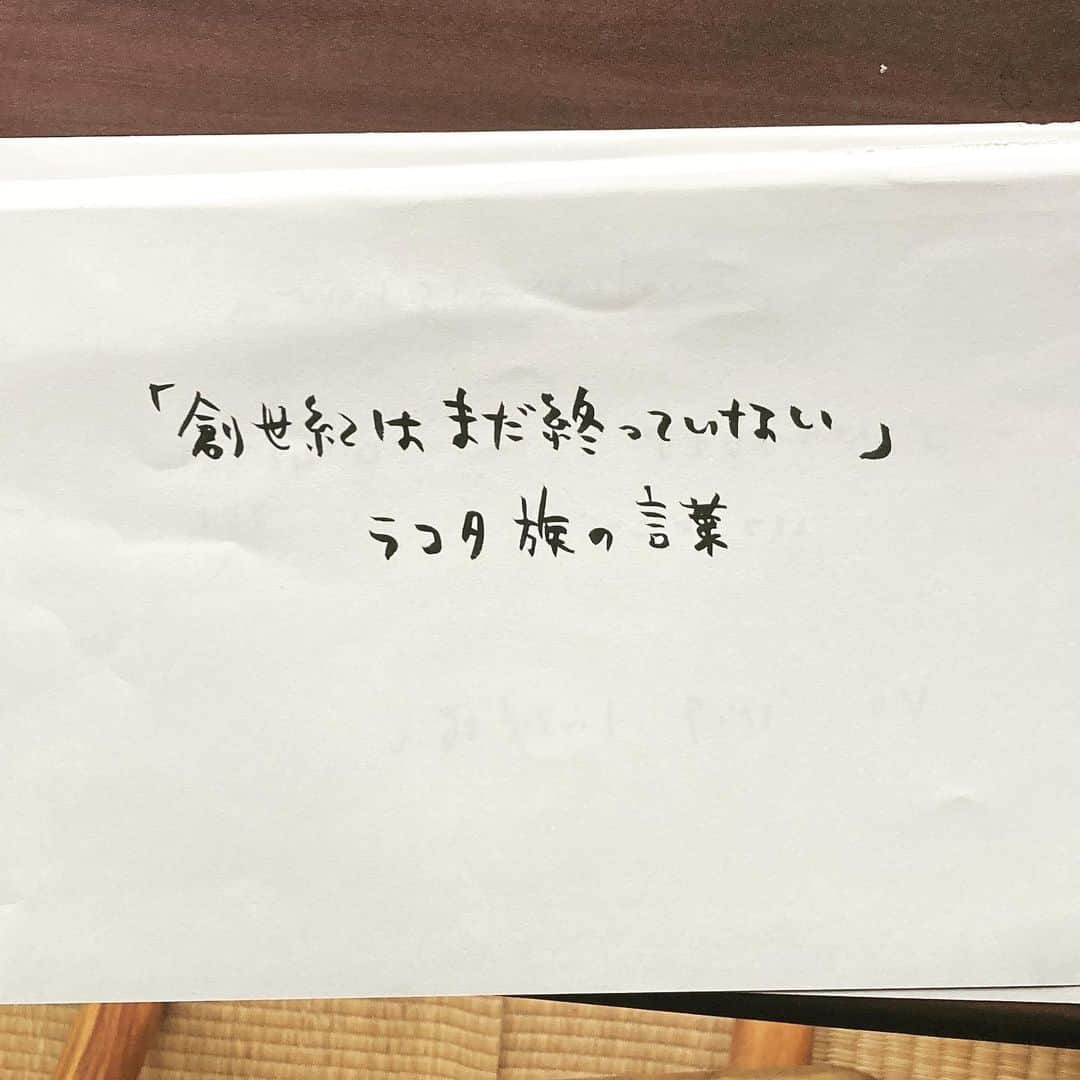 「創世紀はまだ終っていない」
ラコタ族の言葉